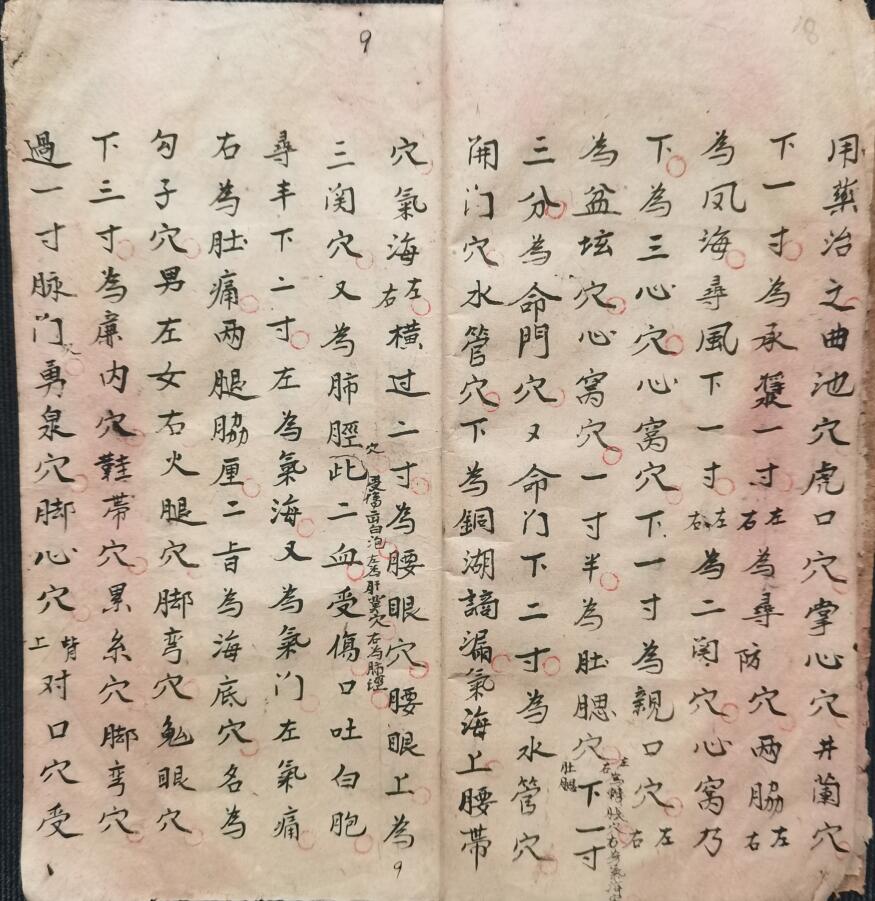 18
用藥治之曲池穴虎口穴掌心穴井蘭穴
下一寸為承漿一寸左右為尋防穴两脇左右
為凤海尋風下一寸左右為二関穴心窩乃
下為三心穴心窩穴下一寸為親口穴左右
為盆坛穴心窩穴一寸半為肚腮穴下一寸
肚腮
三分為命門穴又命门下二寸為水管穴
開门穴水管穴下為銅湖謫漏氣海上腰帶
9
穴氣海左右横过二寸為腰眼穴腰眼上為
穴
左為肝 穴右為肺經
三関穴又為肺脛此二血受傷口吐白胞
尋丰下二寸左為氣海又為氣门左氣痛
右為肚痛两腿脇厘二旨為海底穴名為
勾子穴男左女右火腿穴脚弯穴兔眼穴
下三寸為廉内穴鞋帶穴累糸穴脚弯穴
過一寸脉门勇泉穴脚心穴背上对口穴受
9